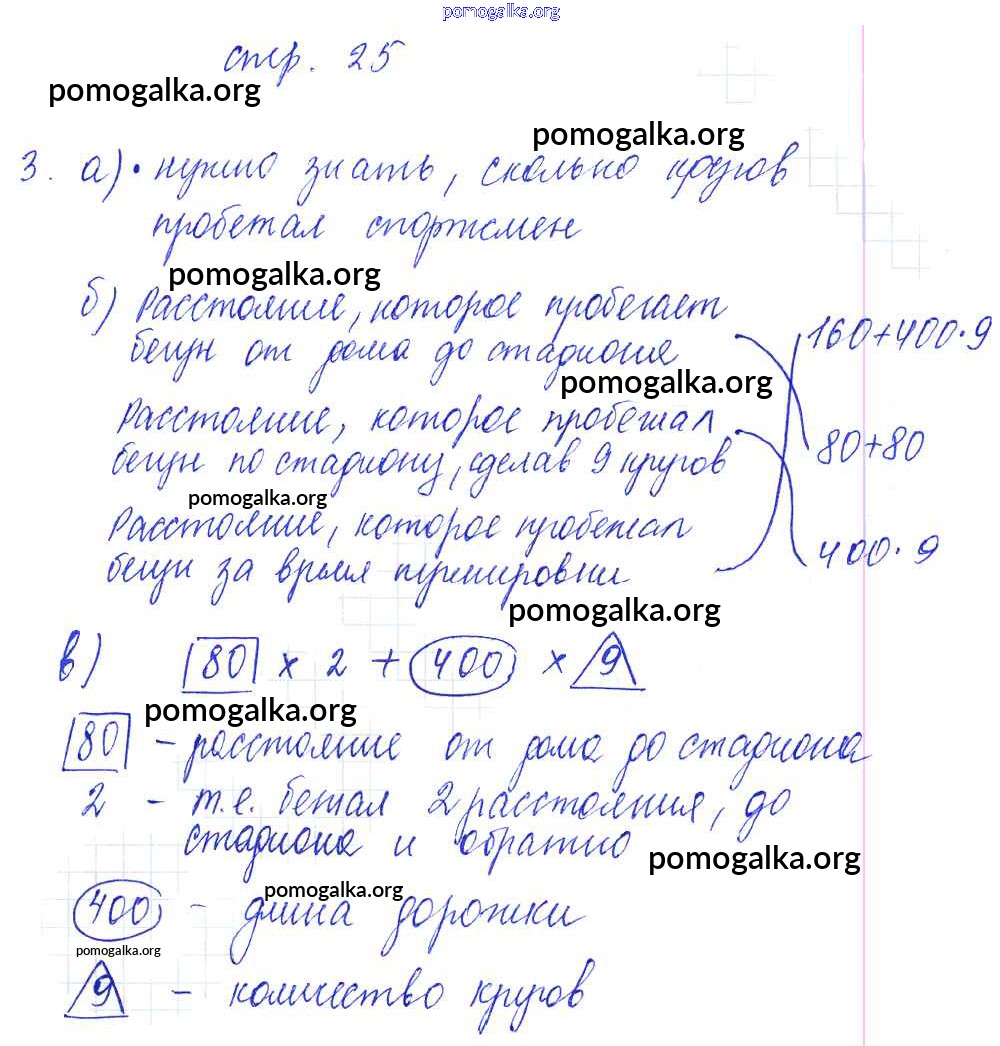 pomogalka.org
стр. 25
pomogalka.org
pomogalka.org
3. а) • нужно знать, сколько кругов
пробежал спортсмен
pomogalka.org
б) Расстояние, которое пробегает
бегун от дома до стадиона
160+400·9
pomogalka.org
Расстояние, которое пробежал
бегун по стадиону, сделав 9 кругов
80+80
pomogalka.org
Расстояние, которое пробежал
бегун за время тренировки
400·9
pomogalka.org
в) 80 x 2 + 400 x 9
pomogalka.org
80 - расстояние от дома до стадиона
2 - т.е. бежал 2 расстояния, до
стадиона и обратно
pomogalka.org
pomogalka.org
400 - длина дорожки
pomogalka.org
9 - количество кругов